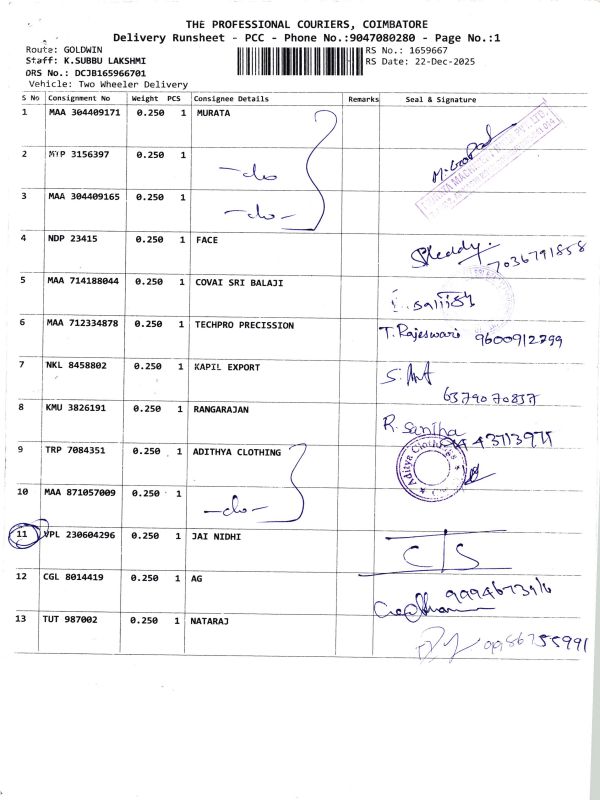 THE PROFESSIONAL COURIERS, COIMBATORE
Delivery Runsheet - PCC - Phone No.:9047080280 - Page No.:1
Route: GOLDWIN RS No.: 1659667
Staff: K.SUBBU LAKSHMI RS Date: 22-Dec-2025
DRS No.: DCJB165966701
Vehicle: Two Wheeler Delivery
S No Consignment No Weight PCS Consignee Details Remarks Seal & Signature
1 MAA 304409171 0.250 1 MURATA
2 MYP 3156397 0.250 1 -do-
3 MAA 304409165 0.250 1 -do-
4 NDP 23415 0.250 1 FACE
7036791858
5 MAA 714188044 0.250 1 COVAI SRI BALAJI
6 MAA 712334878 0.250 1 TECHPRO PRECISSION T. Rajeswari 9600912799
7 NKL 8458802 0.250 1 KAPIL EXPORT
6379070837
8 KMU 3826191 0.250 1 RANGARAJAN R. Santha
9 TRP 7084351 0.250 1 ADITHYA CLOTHING Aditya Clothings
10 MAA 871057009 0.250 1 -do-
11 VPL 230604296 0.250 1 JAI NIDHI
12 CGL 8014419 0.250 1 AG
13 TUT 987002 0.250 1 NATARAJ